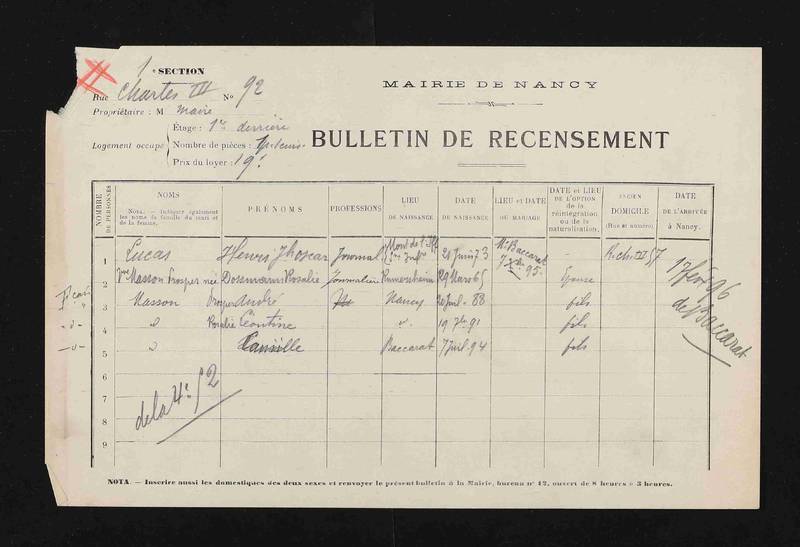 1e SECTION
MAIRIE DE NANCY
Rue Charles III No 92
Propriétaire : M Maire
Étage : 1er derrière
Logement occupé
Nombre de pièces :
Prix du loyer : 19f
BULLETIN DE RECENSEMENT
NOMBRE DE PERSONNES
NOMS
NOTA. — Indiquer également les noms de famille du mari et de la femme.
PRÉNOMS
PROFESSIONS
LIEU DE NAISSANCE
DATE DE NAISSANCE
LIEU et DATE DU MARIAGE
DATE et LIEU DE L'OPTION de la réintégration ou de la naturalisation.
ANCIEN DOMICILE (Rue et numéro)
DATE DE L'ARRIVÉE à Nancy.
1 Lucas Henri Journal 21 Juin 73 Me Baccarat 7 Xbre 95. - R. ch. III 57
2 Vve Masson Prosper née Dossmann Rosalie Journalière 29 Mars 65 Epouse
3 Masson André Nancy 20 Juil. 88 fils
4 d Rosalie Léontine d. 19 7bre 91 fils
5 d Camille Baccarat 7 Juil. 94 fils
6
7
8
9
17 fév 96
de Baccarat
de la 4e S 2
NOTA. — Inscrire aussi les domestiques des deux sexes et renvoyer le présent bulletin à la Mairie, bureau n° 12, ouvert de 8 heures à 3 heures.